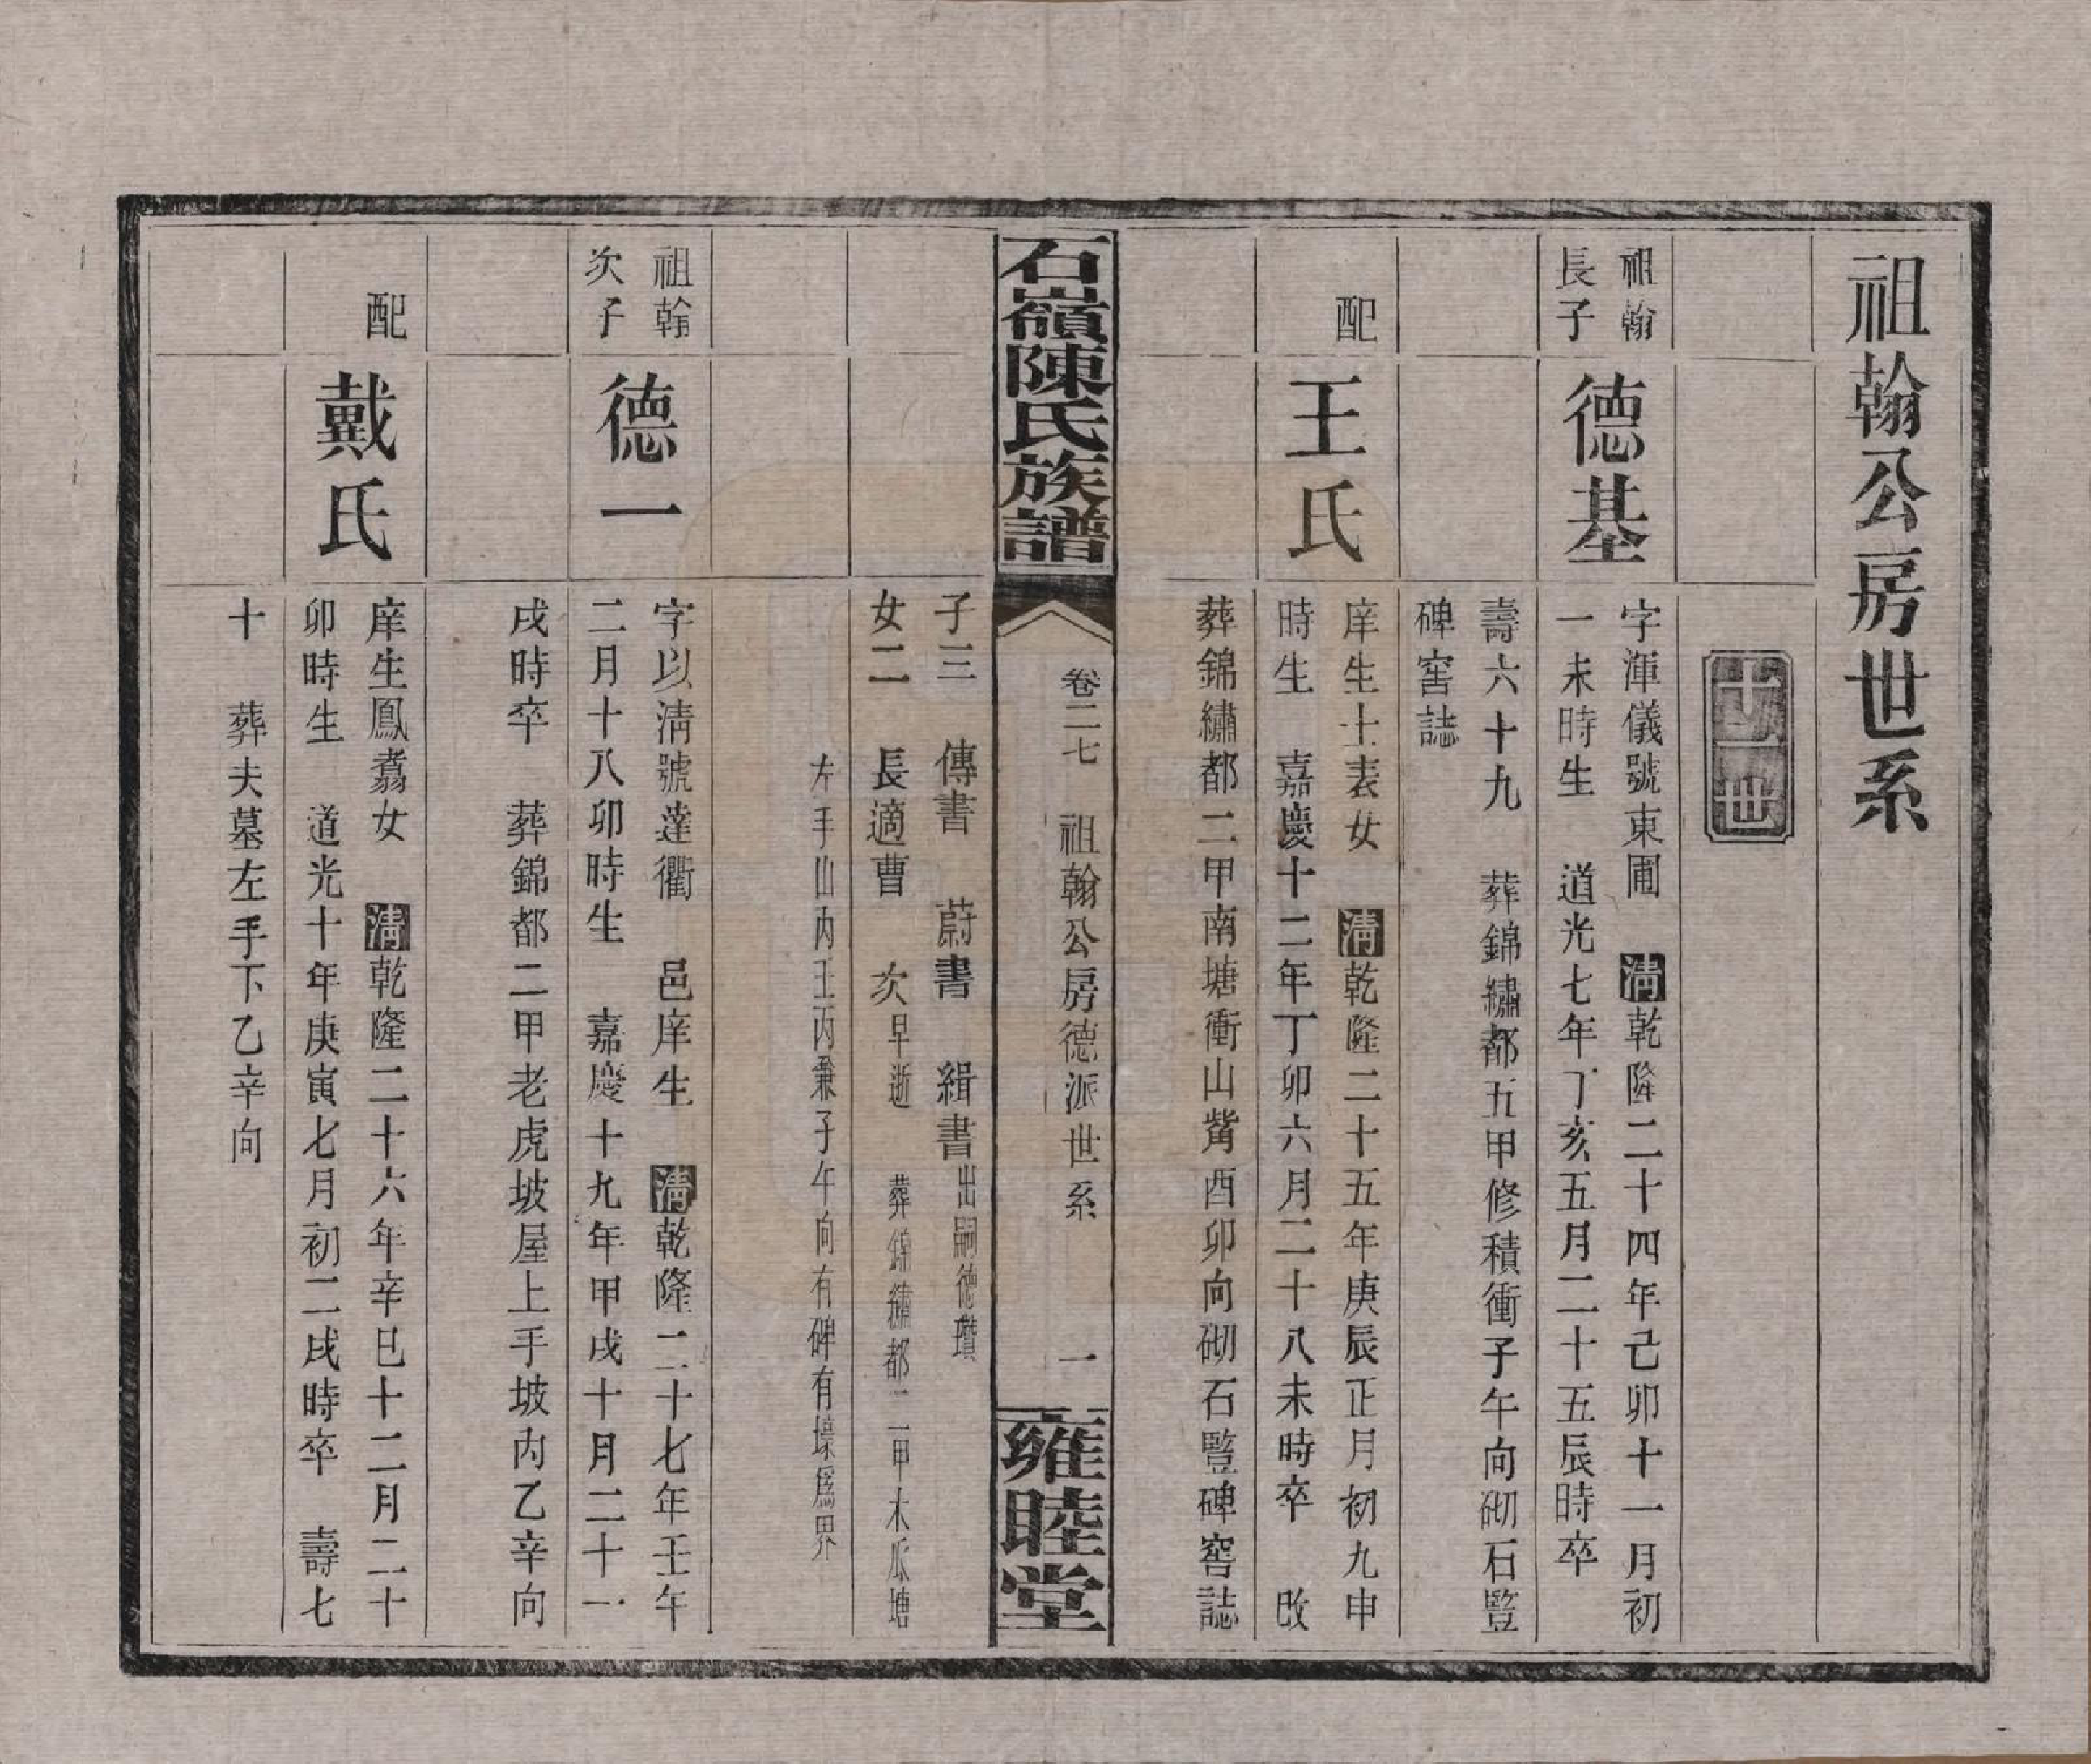 祖翰公房世系
十一世
祖翰
長子
德基
字渾儀號東圃　清乾隆二十四年己卯十一月初
一未時生　道光七年丁亥五月二十五辰時卒
壽六十九　葬錦繡都五甲修積衝子午向砌石豎
碑窖誌
配
王氏
庠生士表女　清乾隆二十五年庚辰正月初九申
時生　嘉慶十二年丁卯六月二十八未時卒　改
葬錦繡都二甲南塘衝山觜酉卯向砌石豎碑窖誌
石嶺陳氏族譜
卷二七　祖翰公房德派世系　一
雍睦堂
子三　傳書　蔚書　緝書出嗣德瓚
女二　長適曹　次早逝　葬錦繡都二甲木瓜塘
左手山內壬丙兼子午向有碑有壕爲界
祖翰
次子
德一
字以清號達衢　邑庠生　清乾隆二十七年壬午
二月十八卯時生　嘉慶十九年甲戌十月二十一
戌時卒　葬錦都二甲老虎坡屋上手坡內乙辛向
配
戴氏
庠生鳳翥女　清乾隆二十六年辛巳十二月二十
卯時生　道光十年庚寅七月初二戌時卒　壽七
十　葬夫墓左手下乙辛向